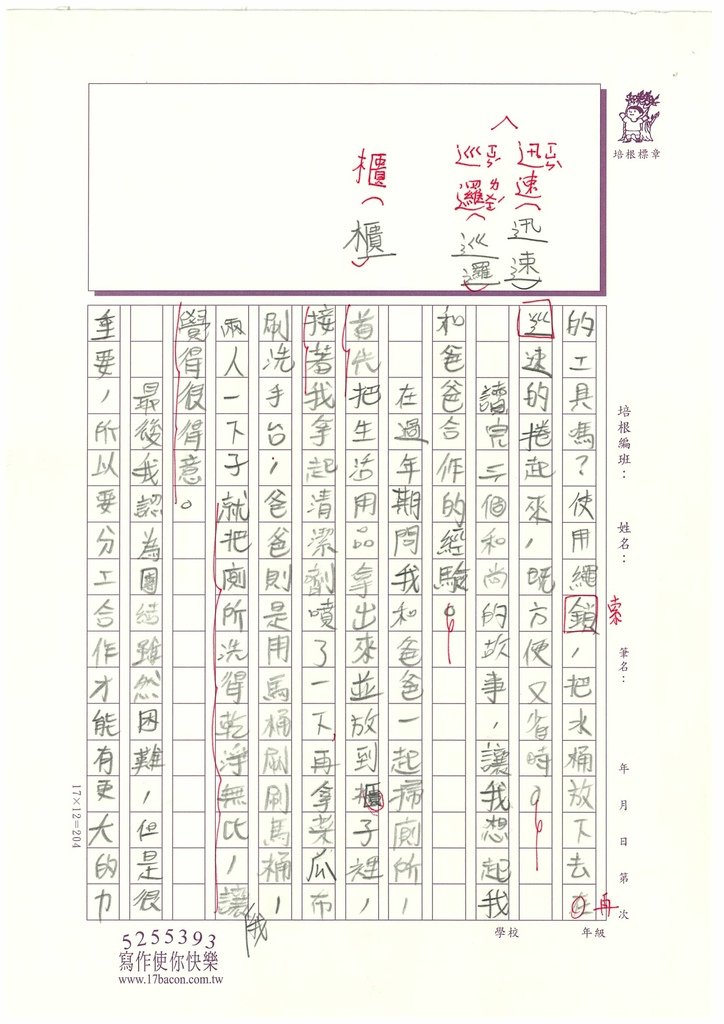 培根標章
迅ㄒㄩㄣˋ速(迅速
巡ㄒㄩㄣˊ邏ㄌㄨㄛˊ(巡邏
櫃(櫃
培根編班：
姓名：
筆名：
年 月 日 第 次
學校
年級
的工具嗎？使用繩鎖，把水桶放下去在
索
再
巡速的捲起來，既方便又省時。
讀完三個和尚的故事，讓我想起我
和爸爸合作的經驗。
在過年期間我和爸爸一起掃廁所，
首先把生活用品拿出來並放到櫃子裡，
接著我拿起清潔劑噴了一下，再拿菜瓜布
刷洗手台；爸爸則是用馬桶刷刷馬桶，
兩人一下子就把廁所洗得乾淨無比，讓
我
覺得很得意。
最後我認為團結雖然困難，但是很
重要，所以要分工合作才能有更大的力
17×12=204
5255393
寫作使你快樂
www.17bacon.com.tw